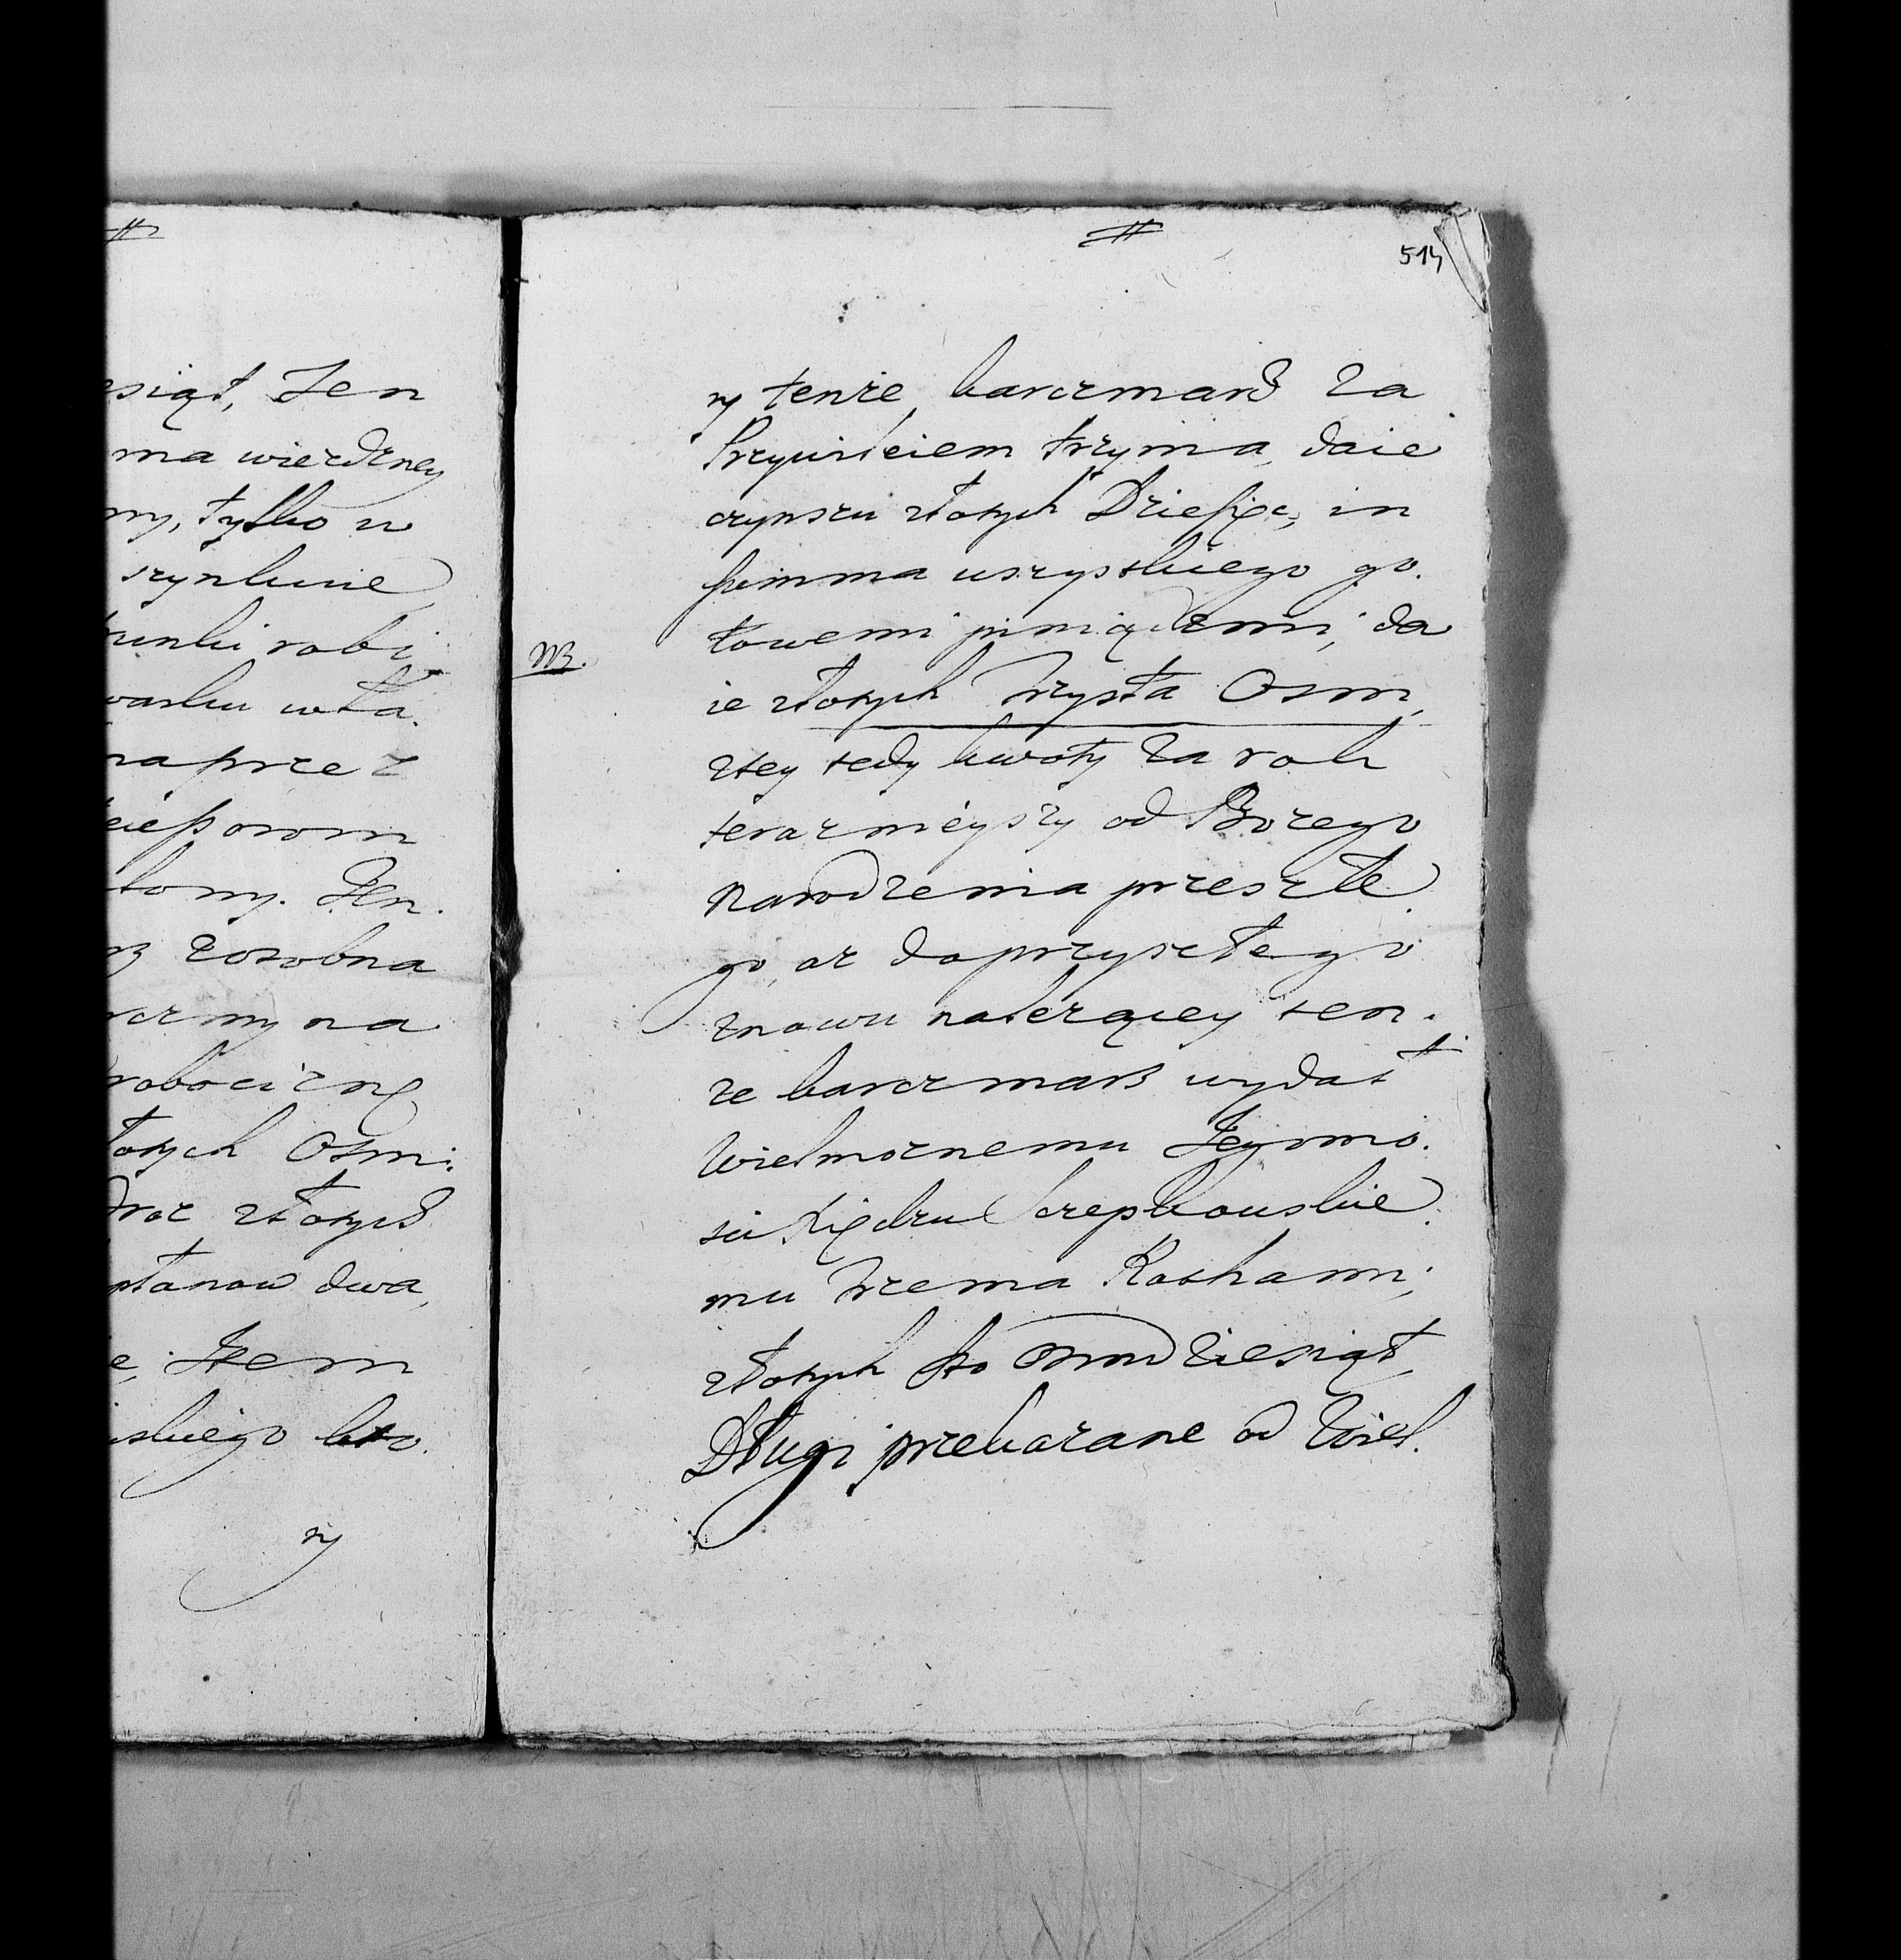 #
esiąt, Ten
ma wierdzney
ny, tylko w
szynkuie
trunki robi
warku wła.
naprzez
cieporom
tony. Ten.
z osobna
czmy na
robociznę
łotych Osmi.
złotych
płanow dwa,
e, Item
skiego kto.
ry
#
514
ry tenże karczmarz za
Przywileiem trzyma, daie
czynszu złotych Dziesięc, in
summa wszystkiego go.
towemi pieniądzmi, da
NB.
ie złotych Trzysta Osm,
ztey tedy kwoty za rok
teraznieyszy od Bozego
Narodzenia przeszłe.
go, az do przyszłego
znowu należącey ten.
ze karczmarz wydał
Wielmoznemu Jegomo.
sci Xiędzu Szczepkowskie.
mu trzema Ratami,
złotych sto osmdziesiąt,
Długi przekazane od Wiel.